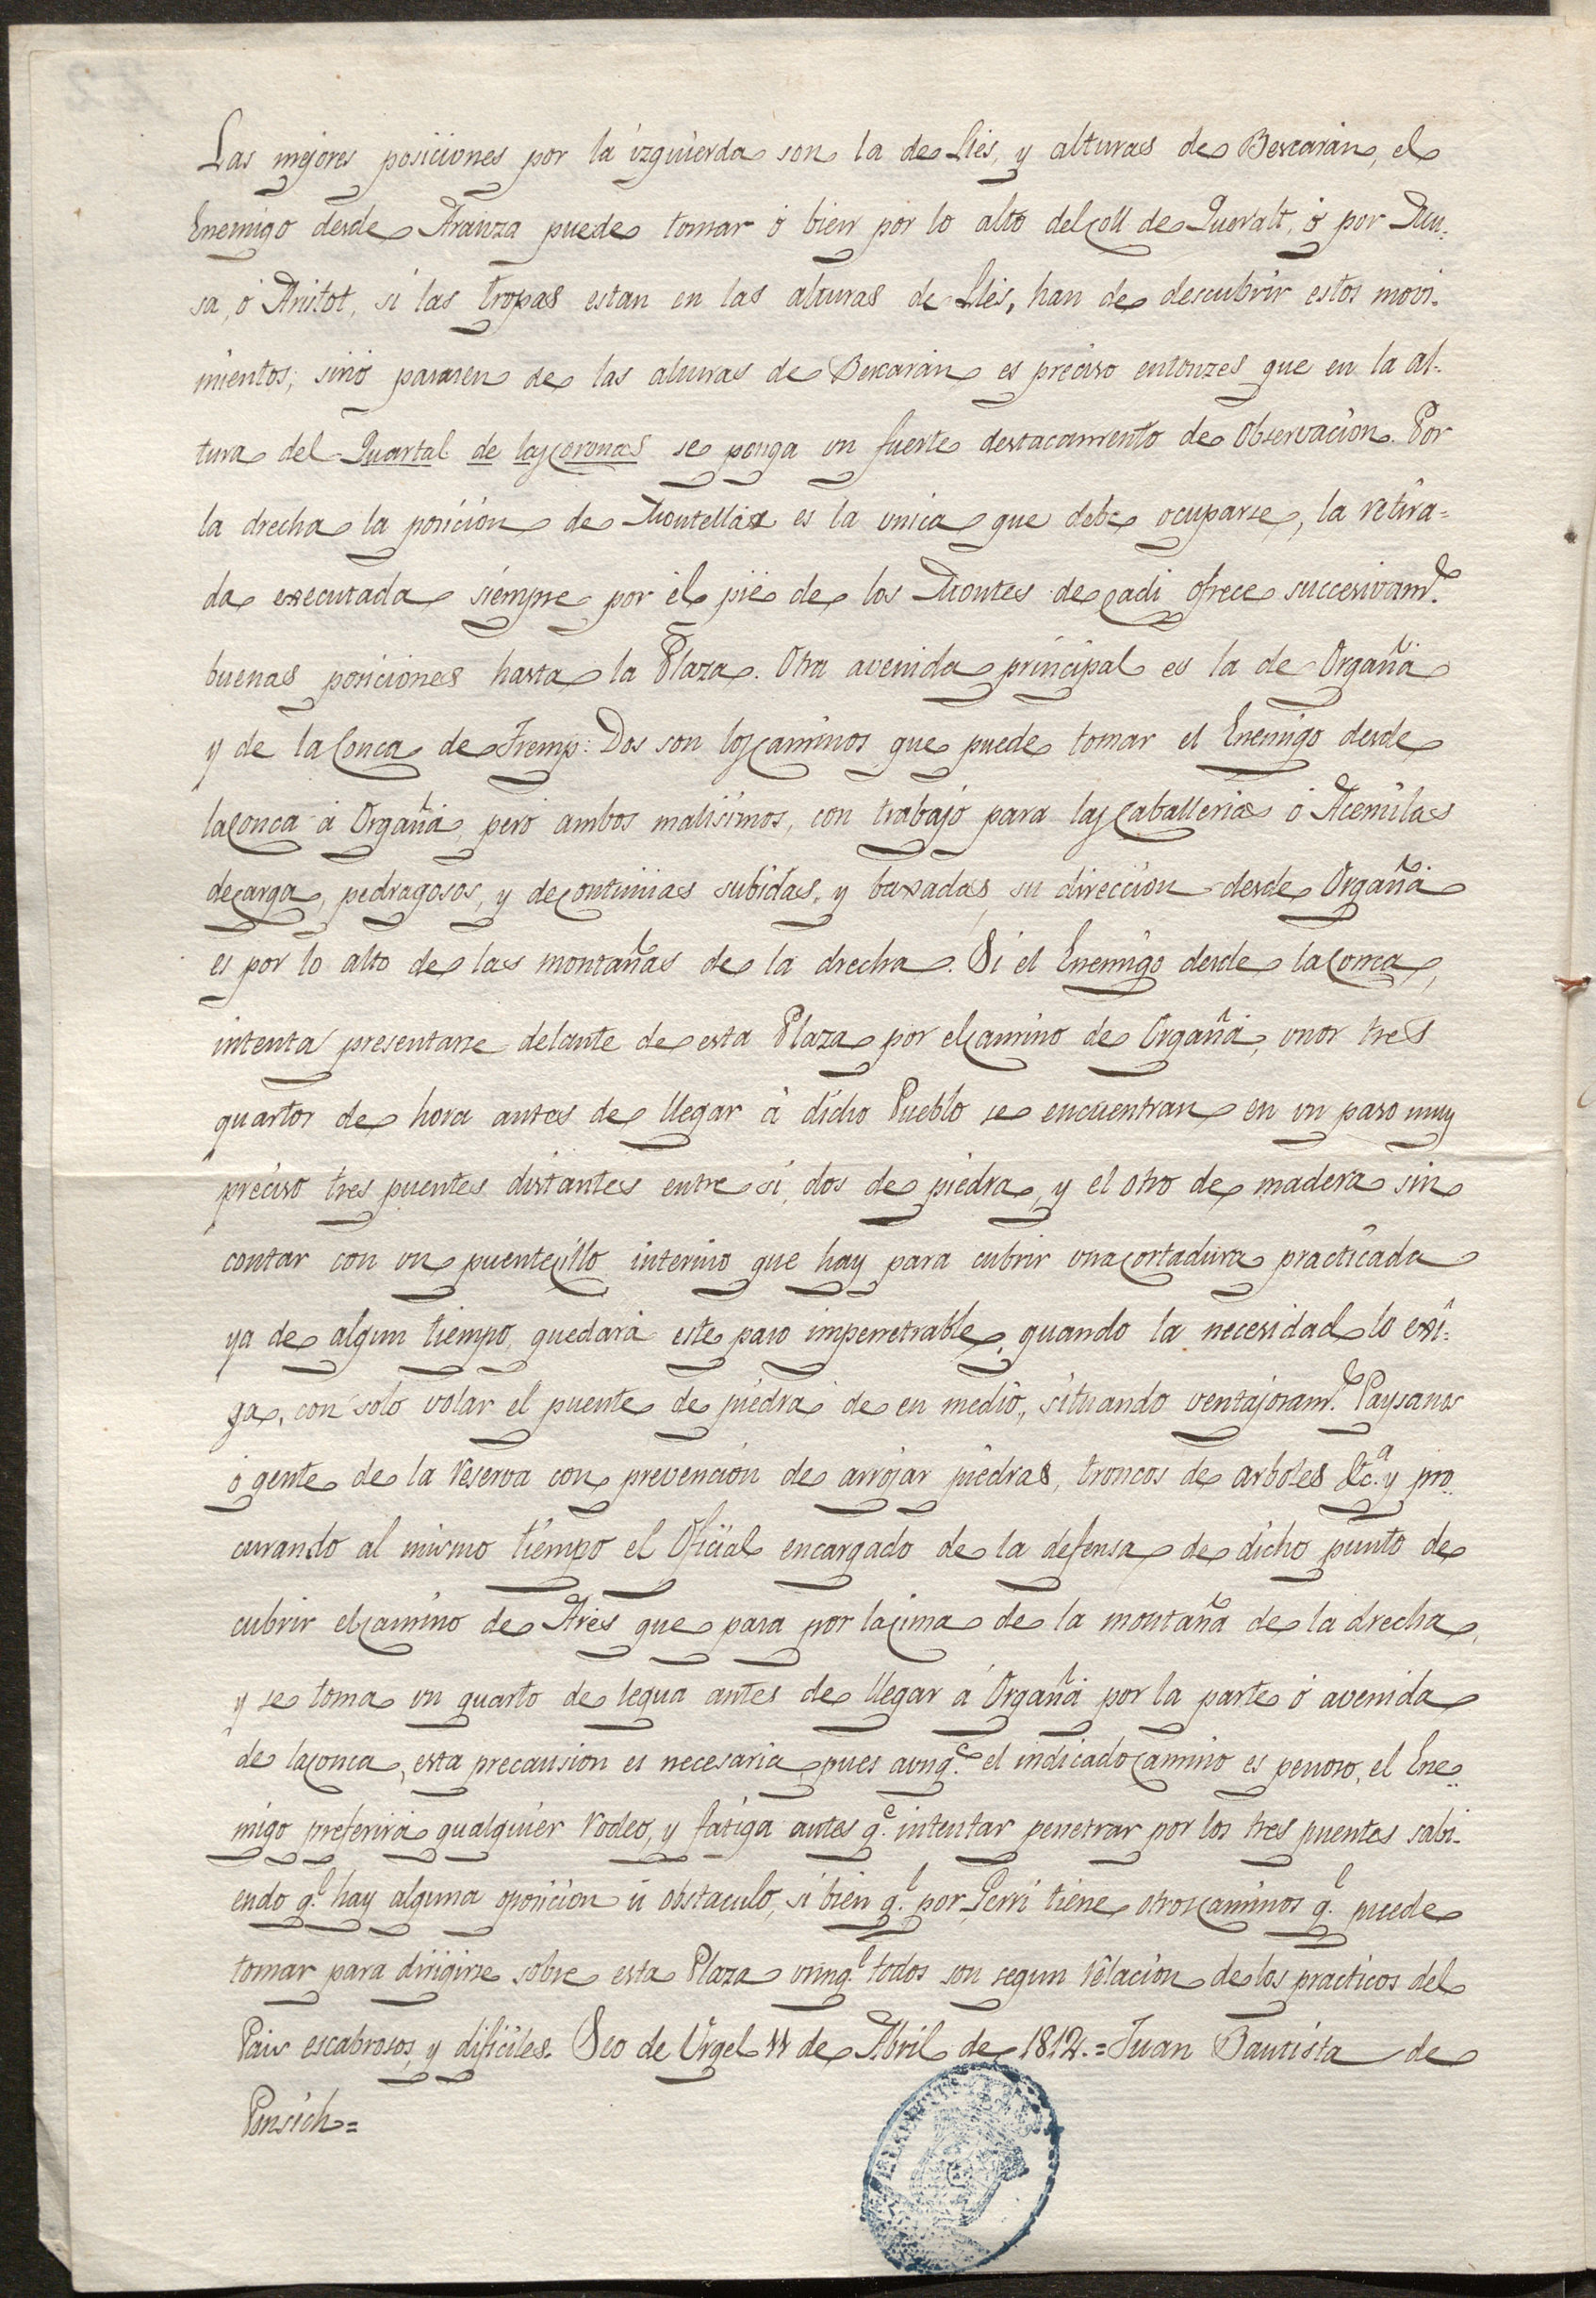 Las mejores posiciones por la izquierda son la de Lles, y alturas de Bescarán, el
Enemigo desde Aranza puede tomar ó bien por lo alto del coll de Queralt, ó por Mu-
sa, ó Aristot, si las tropas estan en las alturas de Llés, han de descubrir estos movi-
mientos; sinó pararen de las alturas de Bescarán es preciso entonzes que en la al-
tura del Quartal de las coronas se ponga un fuerte destacamento de Observacion. Por
la drecha la posicion de Montellá es la unica que debe ocuparse, la retira=
da executada siempre por el pie de los Montes de Cadi ofrece succesivam.te
buenas posiciones hasta la Plaza. Otra avenida principal es la de Orgañá
y de la Conca de Tremp: Dos son los caminos que puede tomar el Enemigo desde
la Conca á Orgañá, pero ambos malisimos, con trabajo para las Caballerias ó Acemilas
de carga, pedragosos, y de continuas subidas, y baxadas, su direccion desde Orgañá
es por lo alto de las montañas de la drecha. Si el Enemigo desde la Conca,
intenta presentarse delante de esta Plaza por el camino de Orgañá, unos tres
quartos de hora antes de llegar á dicho Pueblo se encuentran en un paso muy
preciso tres puentes distantes entre si, dos de piedra, y el otro de madera sin
contar con un puentecillo interino que hay para cubrir una cortadura practicada
ya de algun tiempo, quedará este paso impenetrable, quando la necesidad lo exi=
ga, con solo volar el puente de piedra de en medio, situando ventajosam.te Paysanos
ó gente de la reserva con prevencion de arrojar piedras, troncos de arboles &c.a y pro-
curando al mismo tiempo el Oficial encargado de la defensa de dicho punto de
cubrir el camino de Ares que pasa por la cima de la montaña de la drecha,
y se toma un quarto de legua antes de llegar á Orgañá por la parte ó avenida
de la Conca, esta precausion es necesaria, pues aunq.e el indicado camino es penoso, el Ene-
migo preferirá qualquier rodeo, y fatiga antes q.e intentar penetrar por los tres puentes sabi-
endo q.e hay alguna oposicion ú obstaculo, si bien q.e por Gerri tiene otros caminos q.e puede
tomar para dirigirse sobre esta Plaza aunq.e todos son segun relacion de los practicos del
Pais escabrosos, y dificiles. Seo de Urgel 11 de Abril de 1812.= Juan Bautista de
Ponsich=